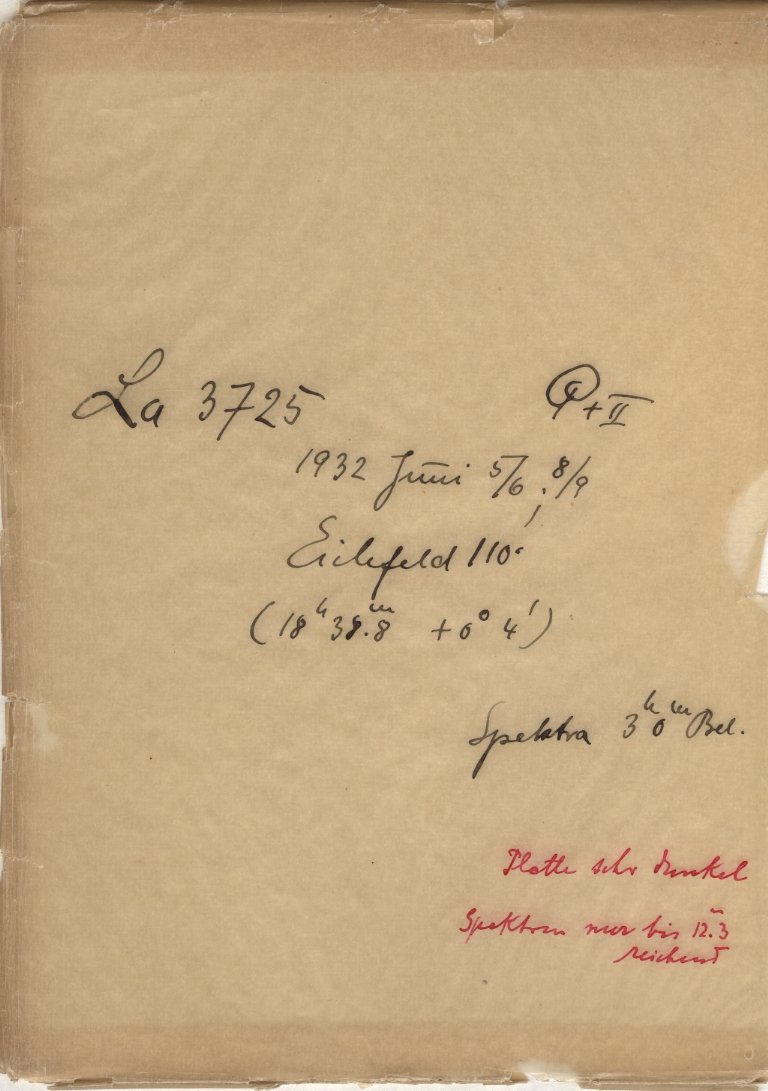 La 3725
+ II
1932 Juni 5/6 ; 8/9
Eichfeld 110
(18ʰ 38.8ᵐ + 0° 4')
Spektra 3ʰ 0ᵐ Bel.
Platte sehr dunkel
Spektren nur bis 12ᵐ.3
reichend